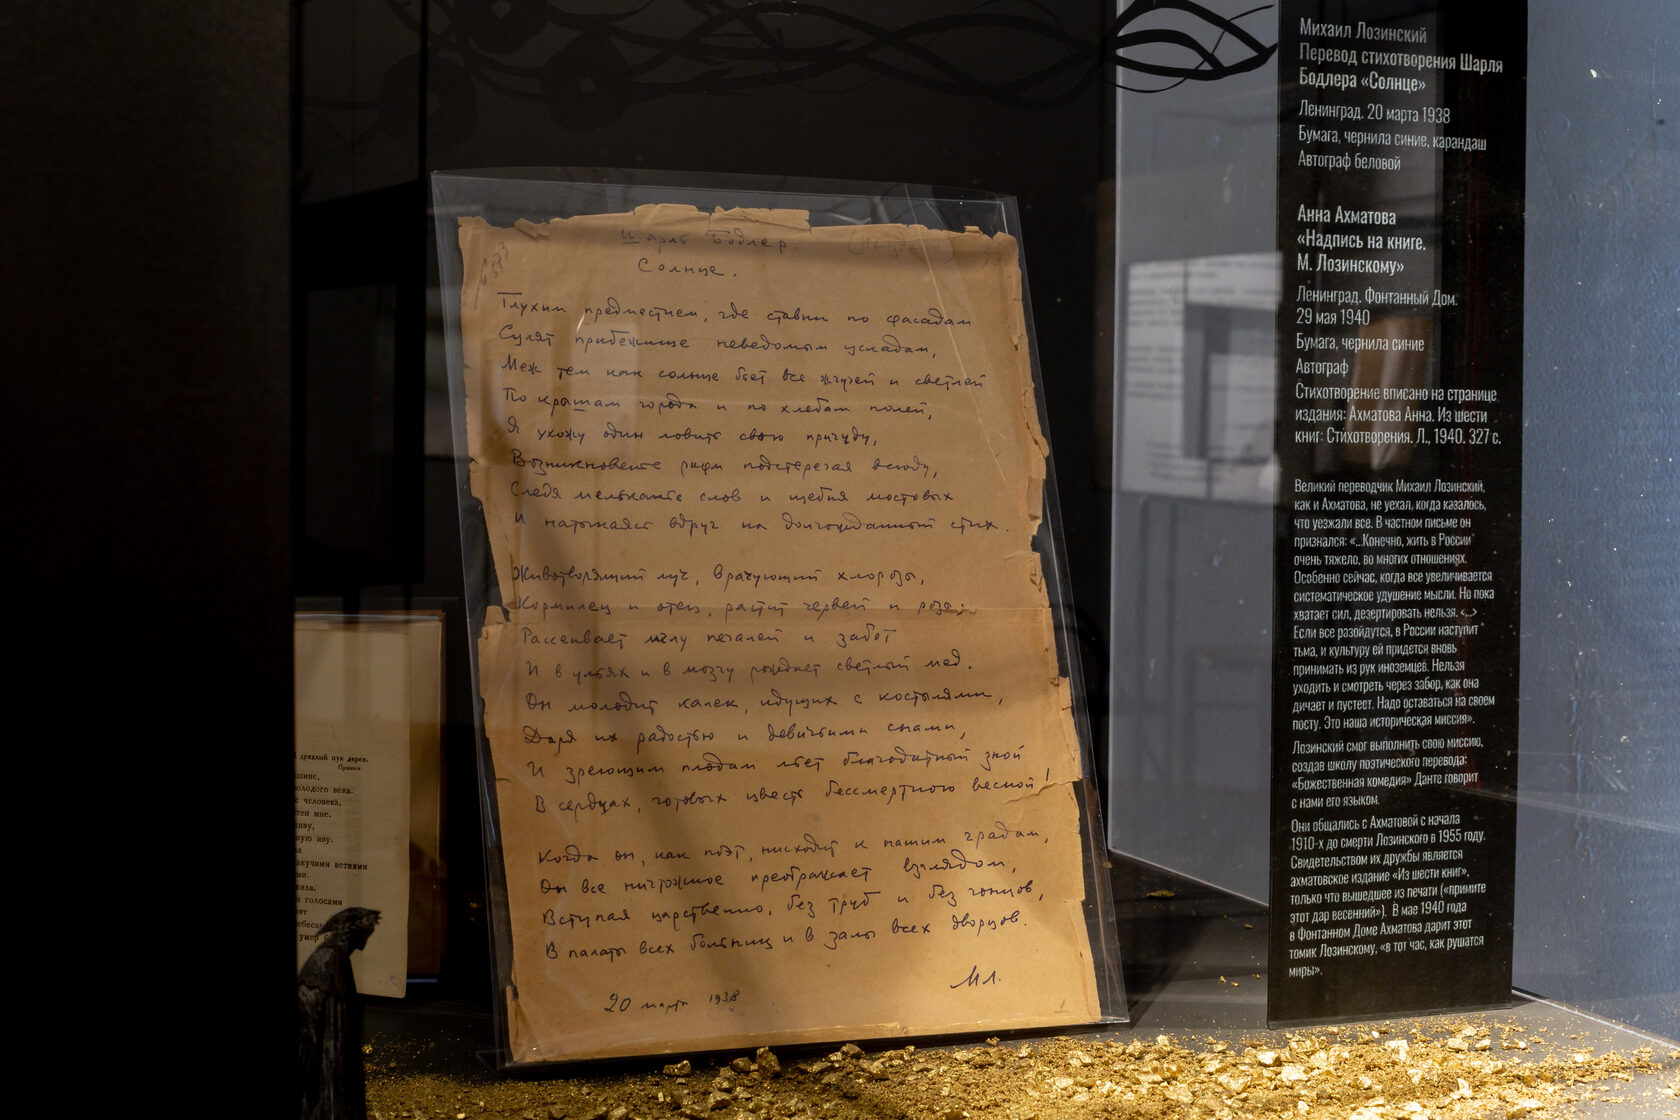 Шарль Бодлер.
Солнце.
Глухим предместием, где ставни по фасадам
Сулят прибежище неведомым усладам,
Меж тем как солнце бьет все жгучей и светлей
По крышам города и по хлебам полей,
Я ухожу один ловить свою причуду,
Возникновенье рифм подстерегая всюду,
Следя мельканье слов и щебня мостовых
И натыкаясь вдруг на долгожданный стих.
Животворящий луч, врачующий хлорозы,
Кормилец и отец, растит червей и розы;
Рассеивает мглу печалей и забот
И в ульях и в мозгу рождает светлый мед.
Он молодит калек, идущих с костылями,
Даря их радостью и девичьими снами,
И зреющим плодам льет благодатный зной
В сердцах, готовых цвесть бессмертного весной!
Когда он, как поэт, нисходит к нашим градам,
Он все ничтожное преображает взглядом,
Вступая царственно, без труб и без гонцов,
В палаты всех больниц и в залы всех дворцов.
МЛ.
20 марта 1938
дряхлый пук дерев.
Пушкин.
олодого века.
человека,
мне.
иву.
акучими ветвями
голосами
умер
Михаил Лозинский
Перевод стихотворения Шарля
Бодлера «Солнце»
Ленинград. 20 марта 1938
Бумага, чернила синие, карандаш
Автограф беловой
Анна Ахматова
«Надпись на книге.
М. Лозинскому»
Ленинград. Фонтанный Дом.
29 мая 1940
Бумага, чернила синие
Автограф
Стихотворение вписано на странице
издания: Ахматова Анна. Из шести
книг: Стихотворения. Л., 1940. 327 с.
Великий переводчик Михаил Лозинский,
как и Ахматова, не уехал, когда казалось,
что уезжали все. В частном письме он
признался: «...Конечно, жить в России
очень тяжело, во многих отношениях.
Особенно сейчас, когда все увеличивается
систематическое удушение мысли. Но пока
хватает сил, дезертировать нельзя. <...>
Если все разойдутся, в России наступит
тьма, и культуру ей придется вновь
принимать из рук иноземцев. Нельзя
уходить и смотреть через забор, как она
дичает и пустеет. Надо оставаться на своем
посту. Это наша историческая миссия».
Лозинский смог выполнить свою миссию,
создав школу поэтического перевода:
«Божественная комедия» Данте говорит
с нами его языком.
Они общались с Ахматовой с начала
1910-х до смерти Лозинского в 1955 году.
Свидетельством их дружбы является
ахматовское издание «Из шести книг»,
только что вышедшее из печати («примите
этот дар весенний»). В мае 1940 года
в Фонтанном Доме Ахматова дарит этот
томик Лозинскому, «в тот час, как рушатся
миры».